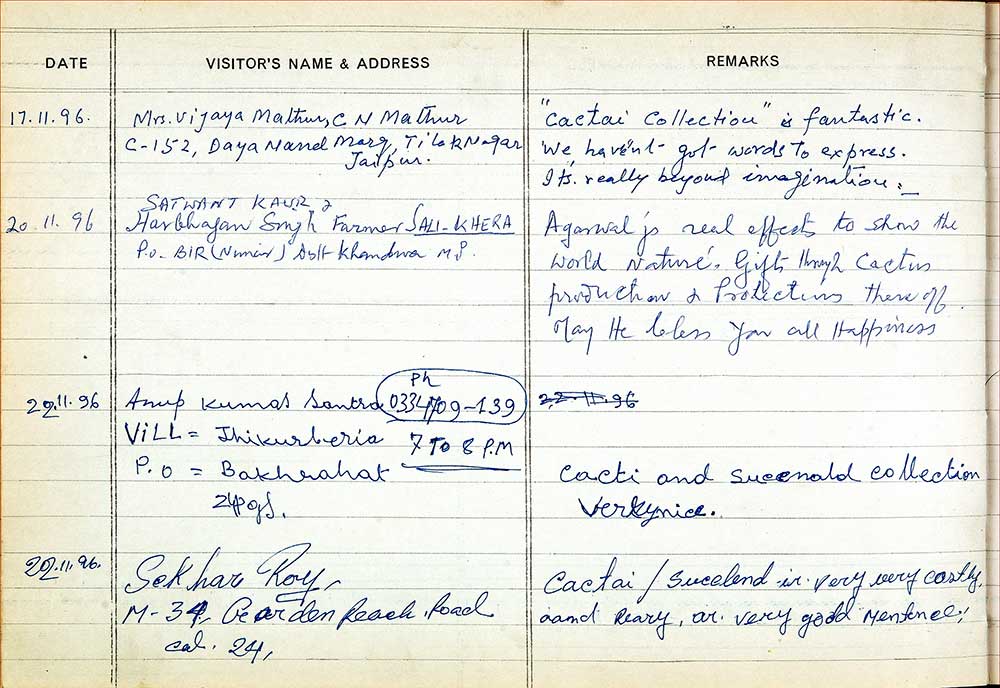 DATE
VISITOR'S NAME & ADDRESS
REMARKS
17.11.96.
Mrs. Vijaya Mathur, C N Mathur
C-152, Daya Nand Marg, Tilak Nagar
Jaipur.
"Cactai Collection" is fantastic.
We have'nt got words to express.
Its really beyond imagination.
20.11.96
SATWANT KAUR &
Harbhajan Singh Farmer SALI-KHERA
P.O. BIR (Nimar) Distt Khandwa M.P.
Agarwal js real effects to show the
World Nature's Gifts through Cactus
production & Protections there off.
May He bless You all Happiness
22.11.96
Anup Kumar Santra
Ph
0334709-139
7 To 8 P.M
ViLL = Jhikurberia
P.O = Bakhrahat
24pgs.
22.11.96
Cacti and Succnald collection
Verkynice.
22.11.96.
Sekhar Roy,
M-34, Garden Reach Road
cal. 24,
Cactai / Succlend is very very costly,
aand Reary, ar. very good mentence;